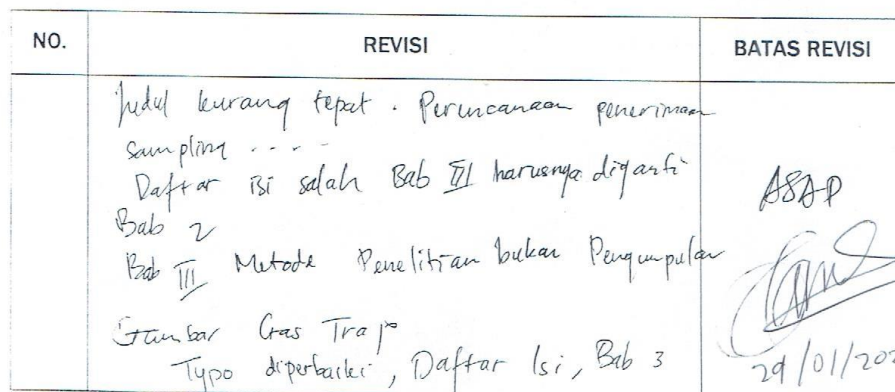 NO. REVISI BATAS REVISI
Judul kurang tepat. Perencanaan penerimaan
sampling ....
Daftar isi salah Bab III harusnya diganti
Bab 2
ASAP
Bab III Metode Penelitian bukan Pengumpulan
Gambar Gas Trap
Typo diperbaiki, Daftar Isi, Bab 3
29/01/202